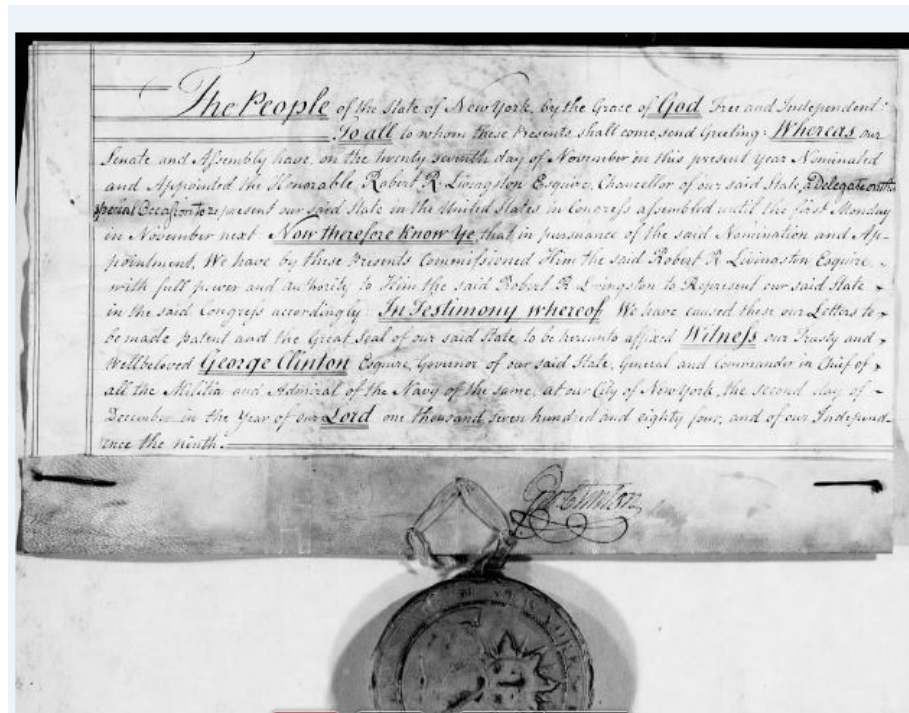 The People of the State of New York, by the Grace of God Free and Independent:
To all to whom these Presents shall come, send Greeting: Whereas our
Senate and Assembly have, on the twenty seventh day of November in this present Year Nominated
and Appointed the Honorable Robert R. Livingston Esquire, Chancellor of our said State, a Delegate on the
special Occasion to represent our said State in the United States in Congress assembled until the first Monday
in November next Now therefore know Ye, that in pursuance of the said Nomination and Ap-
pointment, We have by these Presents Commissioned Him the said Robert R. Livingston Esquire,
with full power and authority to Him the said Robert R Livingston to Represent our said State
in the said Congress accordingly: In Testimony whereof We have caused these our Letters to
be made patent and the Great Seal of our said State to be hereunto affixed Witness our Trusty and
Wellbeloved George Clinton Esquire, Governor of our said State, General and Commander in Chief of
all the Militia and Admiral of the Navy of the same, at our City of New York, the second day of
December in the Year of our Lord one thousand seven hundred and eighty four, and of our Independ-
ence the Ninth.
Geo Clinton